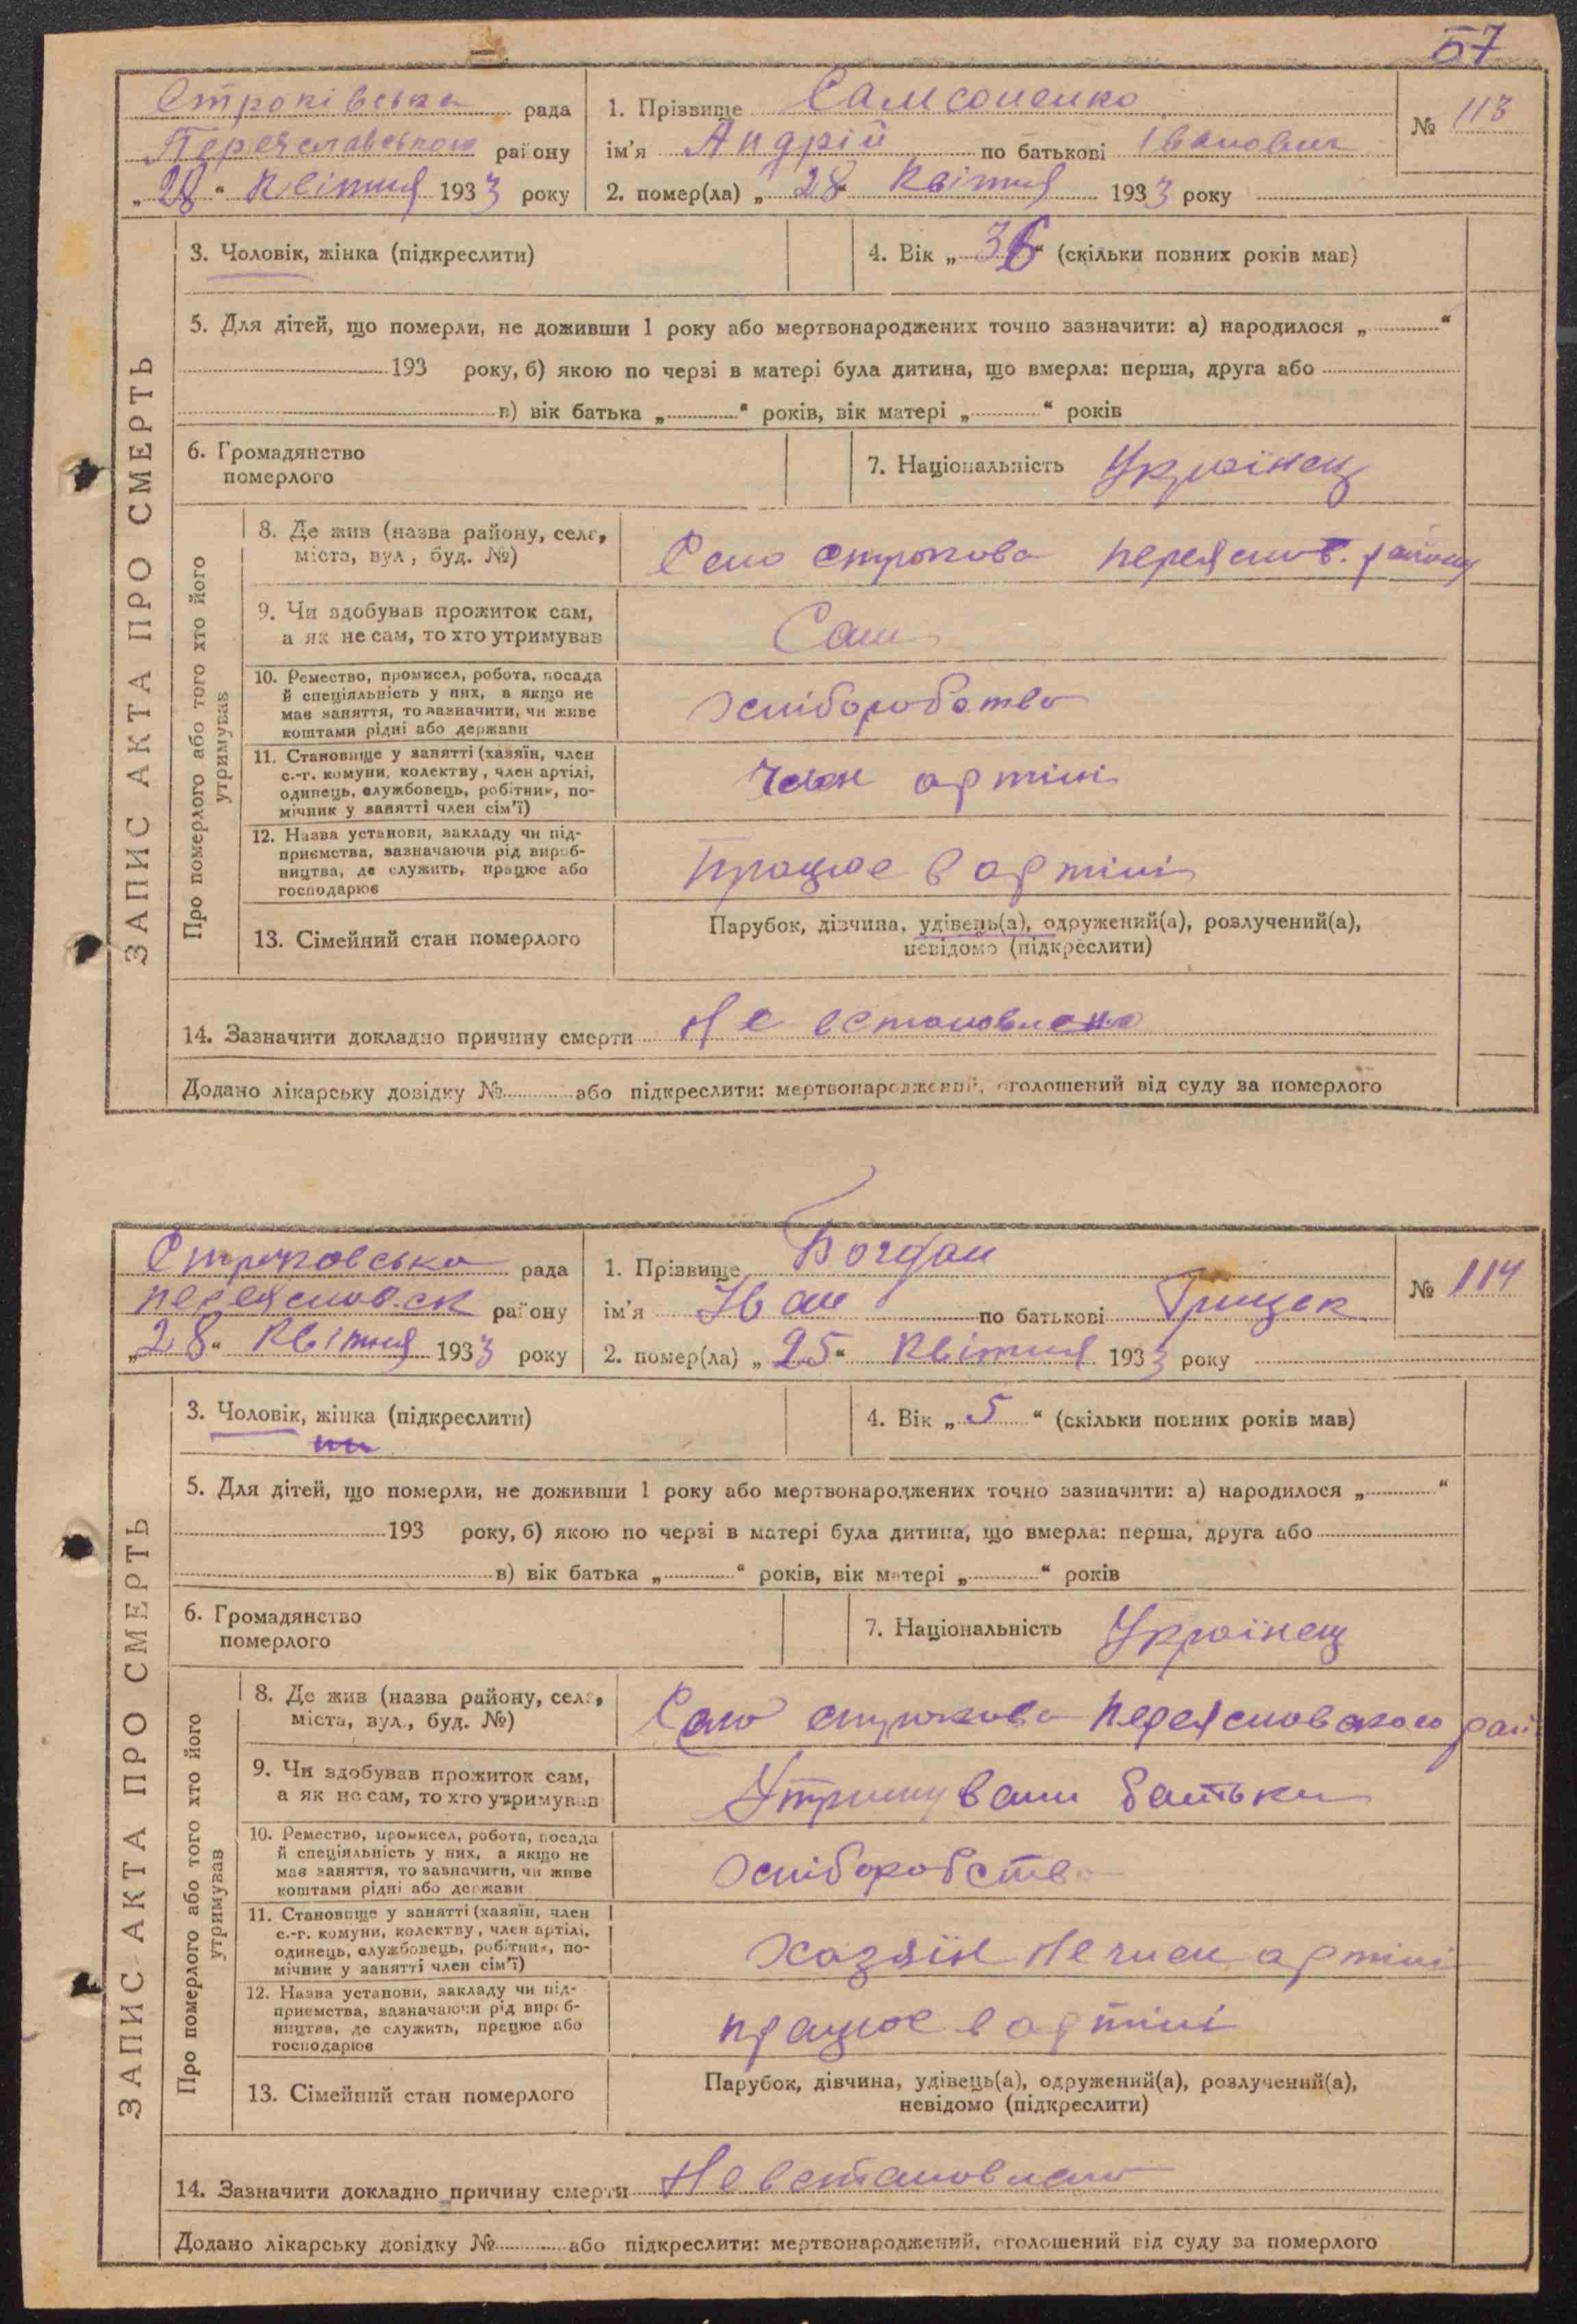 57
Строківська рада
Переяславського району
„28“ Квітня 1933 року
1. Прізвище Самсоненко
ім'я Андрій по батькові Іванович
2. помер(ла) „28“ Квітня 1933 року
№ 113
ЗАПИС АКТА ПРО СМЕРТЬ
3. Чоловік, жінка (підкреслити)
4. Вік „36“ (скільки повних років мав)
5. Для дітей, що померли, не доживши 1 року або мертвонароджених точно зазначити: а) народилося „ “
193 року, б) якою по черзі в матері була дитина, що вмерла: перша, друга або
в) вік батька „ “ років, вік матері „ “ років
6. Громадянство
померлого
7. Національність Українец
Про померлого або того хто його
утримував
8. Де жив (назва району, села,
міста, вул., буд. №)
Село Строкова переяслов. району
9. Чи здобував прожиток сам,
а як не сам, то хто утримував
Сам
10. Ремество, промисел, робота, посада
й спеціяльність у них, а якщо не
мав заняття, то зазначити, чи живе
коштами рідні або держави
хліборобство
11. Становище у занятті (хазяїн, член
с.-г. комуни, колективу, член артілі,
одинець, службовець, робітник, по-
мічник у занятті член сім'ї)
член артілі
12. Назва установи, закладу чи під-
приємства, зазначаючи рід вироб-
ництва, де служить, працює або
господарює
працює в артілі
13. Сімейний стан померлого
Парубок, дівчина, удівець(а), одружений(а), розлучений(а),
невідомо (підкреслити)
14. Зазначити докладно причину смерти Не встановлено
Додано лікарську довідку № або підкреслити: мертвонароджений, оголошений від суду за померлого
Строковська рада
переясловск району
„28“ Квітня 1933 року
1. Прізвище Богдан
ім'я Іван по батькові Грицек
2. помер(ла) „25“ Квітня 1933 року
№ 114
ЗАПИС АКТА ПРО СМЕРТЬ
3. Чоловік, жінка (підкреслити)
4. Вік „5“ (скільки повних років мав)
5. Для дітей, що померли, не доживши 1 року або мертвонароджених точно зазначити: а) народилося „ “
193 року, б) якою по черзі в матері була дитина, що вмерла: перша, друга або
в) вік батька „ “ років, вік матері „ “ років
6. Громадянство
померлого
7. Національність Українец
Про померлого або того хто його
утримував
8. Де жив (назва району, села,
міста, вул., буд. №)
Село строкова Переясловского рай
9. Чи здобував прожиток сам,
а як не сам, то хто утримував
Утримували батьки
10. Ремество, промисел, робота, посада
й спеціяльність у них, а якщо не
мав заняття, то зазначити, чи живе
коштами рідні або держави
хліборобство
11. Становище у занятті (хазяїн, член
с.-г. комуни, колективу, член артілі,
одинець, службовець, робітник, по-
мічник у занятті член сім'ї)
хазяїн не член артілі
12. Назва установи, закладу чи під-
приємства, зазначаючи рід вироб-
ництва, де служить, працює або
господарює
працює в артілі
13. Сімейний стан померлого
Парубок, дівчина, удівець(а), одружений(а), розлучений(а),
невідомо (підкреслити)
14. Зазначити докладно причину смерти Не встановлено
Додано лікарську довідку № або підкреслити: мертвонароджений, оголошений від суду за померлого